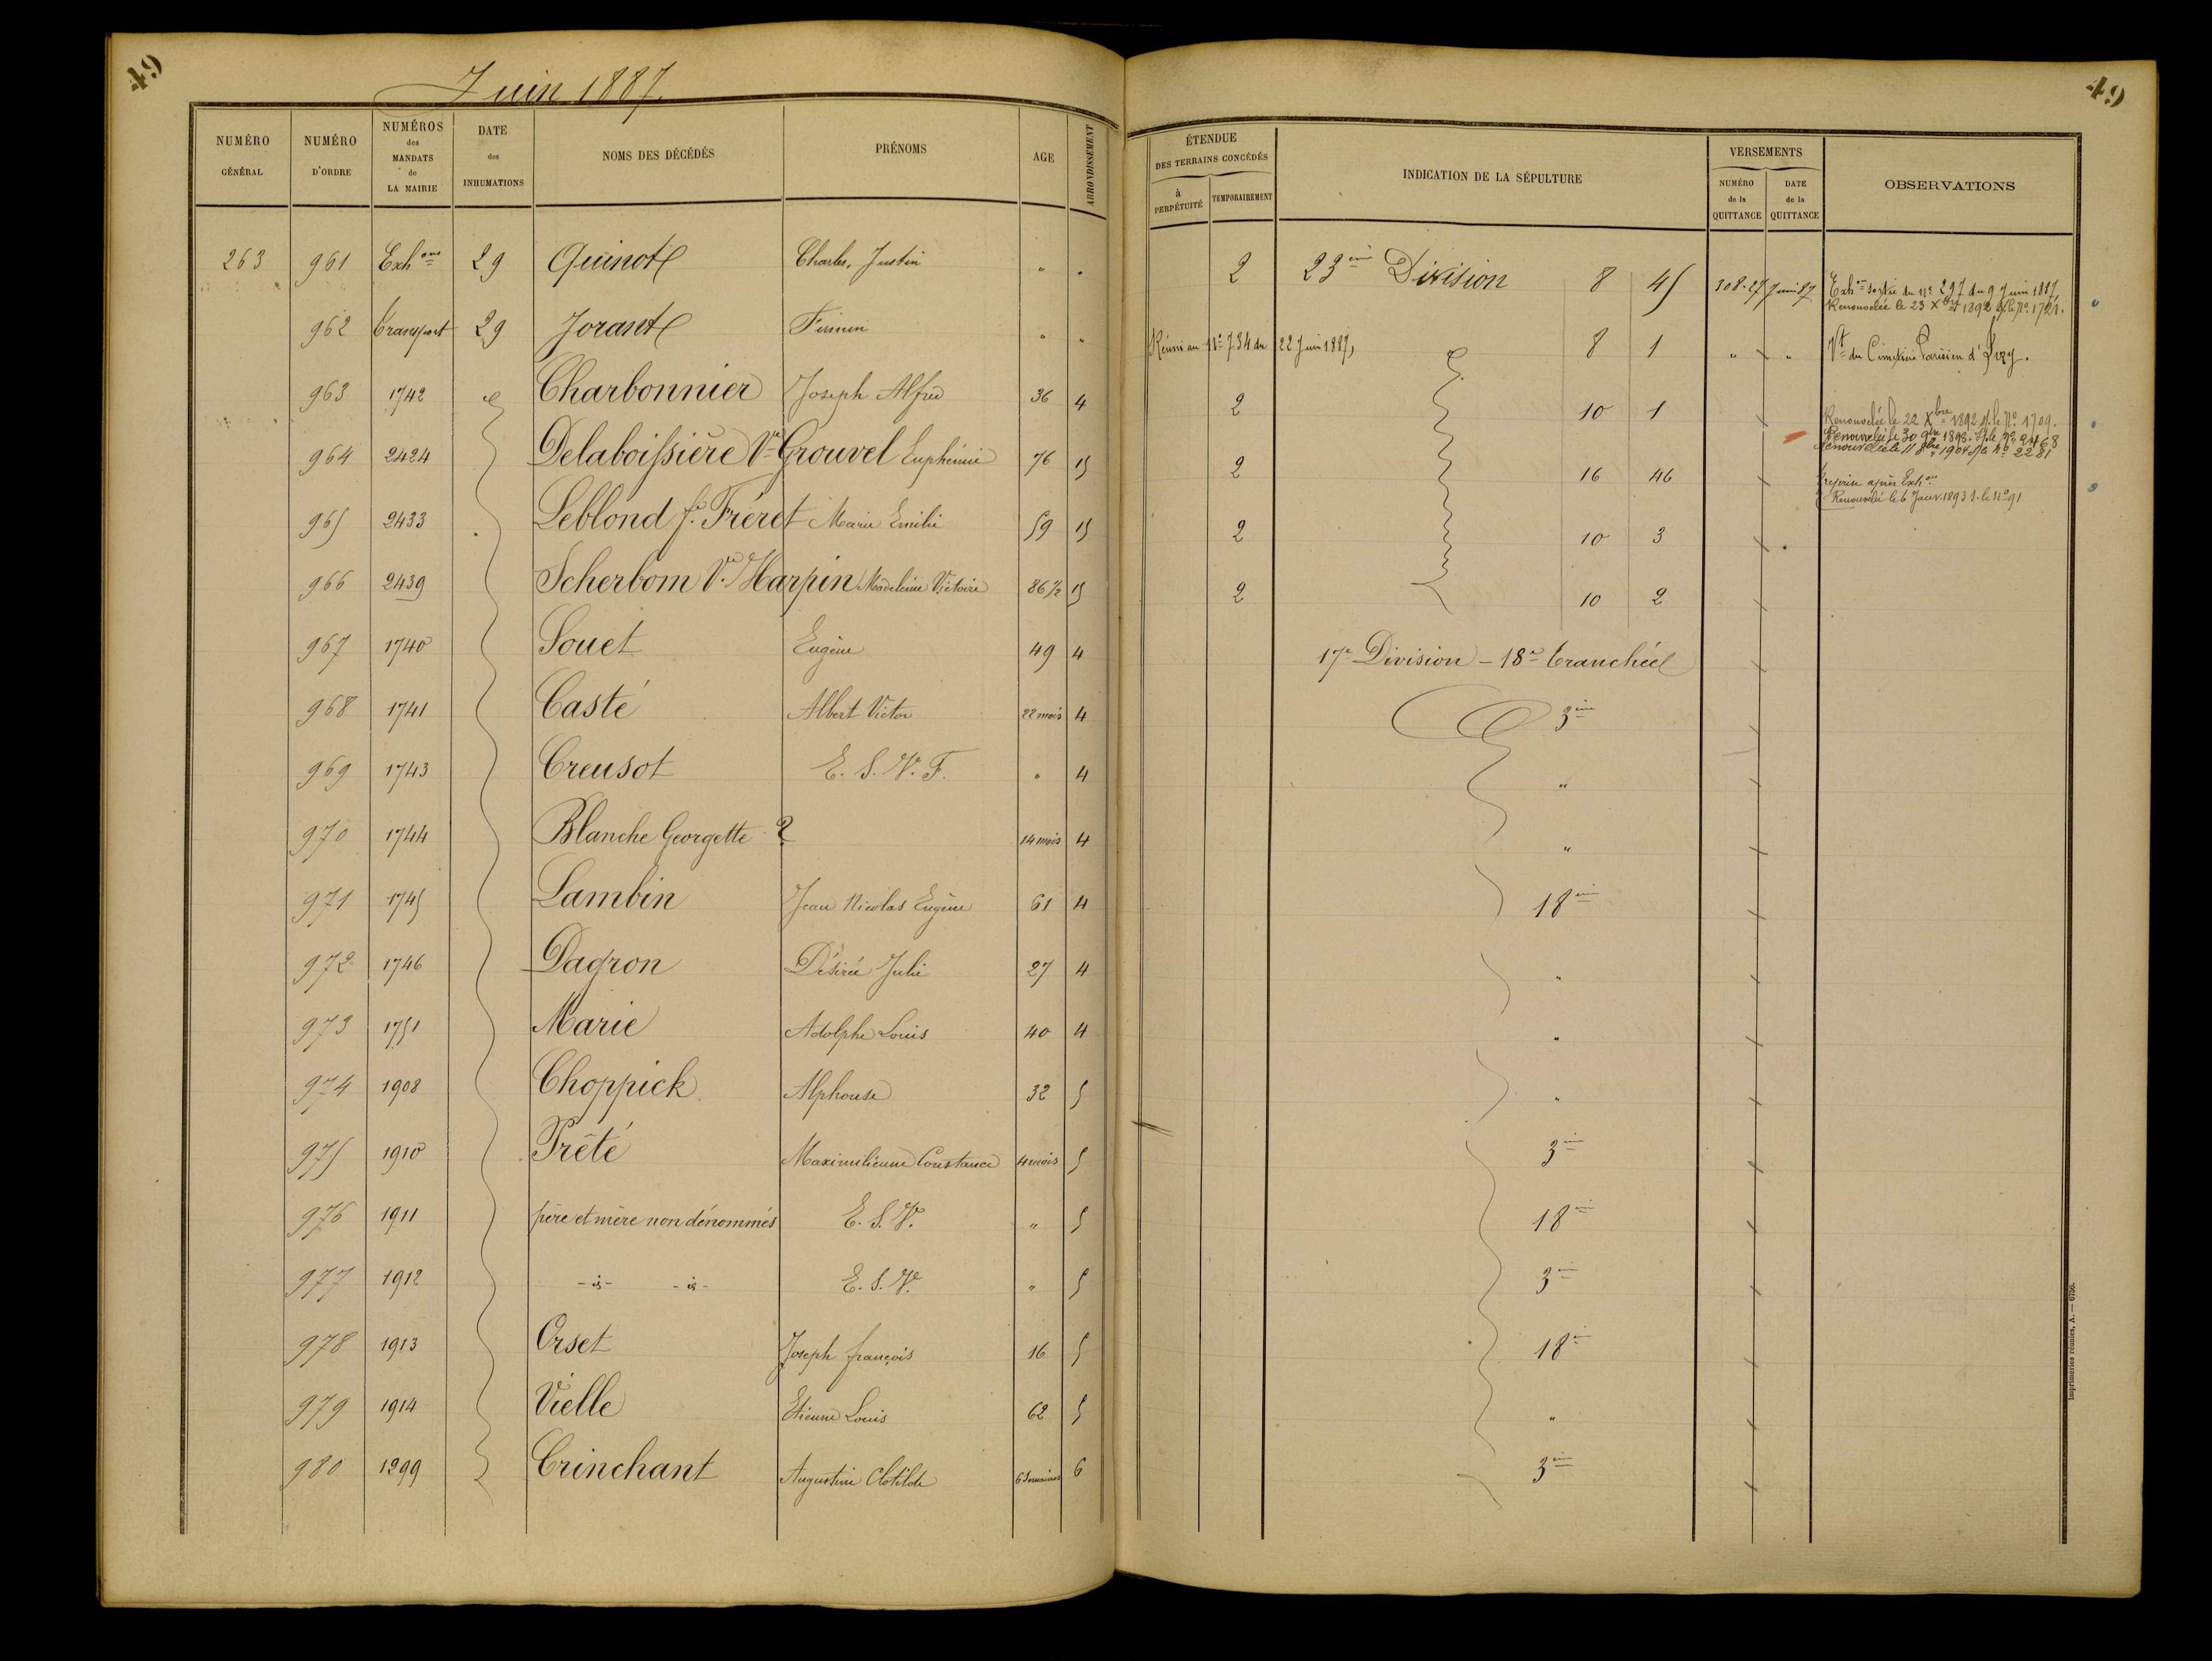 49
Juin 1887.
NUMÉRO GÉNÉRAL | NUMÉRO D'ORDRE | NUMÉROS des MANDATS de LA MAIRIE | DATE des INHUMATIONS | NOMS DES DÉCÉDÉS | PRÉNOMS | AGE | ARRONDISSEMENT
263 961 Exhon 29 Quinot Charles, Justin " "
962 Transport 29 Jorant Firmin " "
963 1742 Charbonnier Joseph Alfred 36 4
964 2424 Delaboissière Ve Grouvel Euphémie 76 15
965 2433 Leblond fe Fréret Marie Emilie 59 15
966 2439 Scherbom Ve Harpin Madeleine Victoire 86 1/2 15
967 1740 Souet Eugène 49 4
968 1741 Casté Albert Victor 22 mois 4
969 1743 Creusot E. S. V. F. " 4
970 1744 Blanche Georgette ? 14 mois 4
971 1745 Lambin Jean Nicolas Eugène 61 4
972 1746 Dagron Désirée Julie 27 4
973 1751 Marie Adolphe Louis 40 4
974 1908 Choppick Alphonse 32 5
975 1910 Prêté Maximilienne Constance 4 mois 5
976 1911 père et mère non dénommés E. S. V. " 5
977 1912 - id - - id - E. S. V. " 5
978 1913 Orset Joseph françois 16 5
979 1914 Vielle Etienne Louis 62 5
980 1299 Crinchant Augustine Clotilde 6 Semaines 6
49
ÉTENDUE DES TERRAINS CONCÉDÉS | à PERPÉTUITÉ | TEMPORAIREMENT | INDICATION DE LA SÉPULTURE | VERSEMENTS | NUMÉRO de la QUITTANCE | DATE de la QUITTANCE | OBSERVATIONS
2 23ème Division 8 45 308. 27 Juin 87 Exhon sortie du No 297 du 9 Juin 1887
Renouvelée le 23 Xbre 1892 s. le No 1721.
Réuni au No 734 du 22 Juin 1887, 8 1 " " Vt du Cimetière Parisien d'Ivry.
2 10 1 Renouvelée le 22 Xbre 1892 s. le No 1709.
Renouvelée le 30 9bre 1898. s. le No 2468
Renouvelée le 11 8bre 1904 s. le No 2281
2 16 46 reprise après Exhon
Renouvelée le 6 Janv. 1893 s. le No 91
2 10 3
2 10 2
17e Division - 18e tranchée
3ème
"
"
18ème
"
"
"
3ème
18ème
3ème
18e
"
3ème
Imprimeries réunies, A. — 6756.